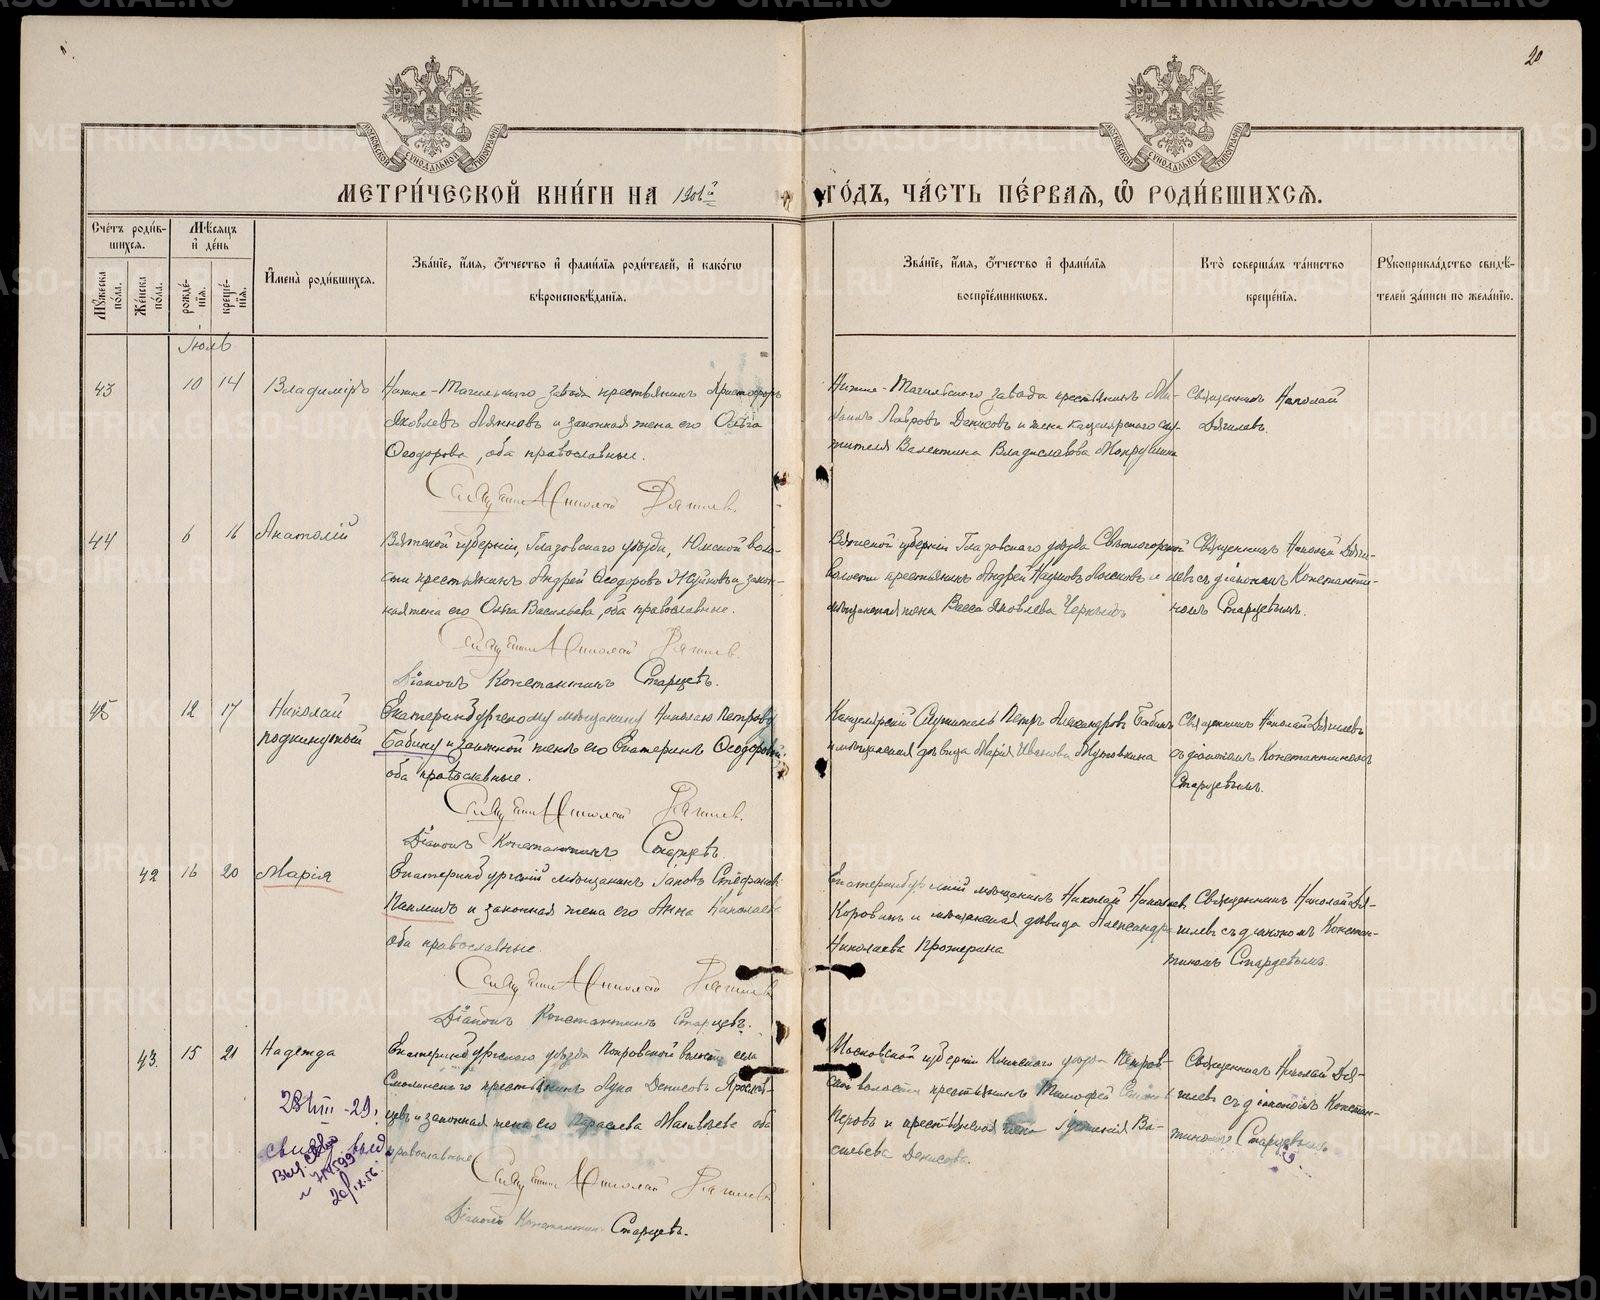 20
МОСКОВСКОЙ СѴНОДАЛЬНОЙ ТИПОГРАФІИ
МОСКОВСКОЙ СѴНОДАЛЬНОЙ ТИПОГРАФІИ
МЕТРИ́ЧЕСКОЙ КНИ́ГИ НА 1901й
ГО́ДЪ, ЧА́СТЬ ПЕ́РВАЯ, Ѡ҆ РОДИ́ВШИХСЯ.
Сче́тъ роди́в-
шихся.
Мѣ́сяцъ
и҆ де́нь
Мꙋ́жеска по́ла.
Же́нска по́ла.
рожде́-
нїя.
креще́-
нїя.
И҆мена̀ роди́вшихся.
Зва́нїе, и҆́мя, ѻ҆́тчество и҆ фами́лїя роди́телей, и҆ како́гѡ
вѣроисповѣ́данїя.
Зва́нїе, и҆́мя, ѻ҆́тчество и҆ фами́лїя
воспрїе́мниковъ.
Кто̀ соверша́лъ та́инство
креще́нїя.
Рꙋкоприкла́дство свидѣ́-
телей за́писи по жела́нїю.
Іюль
43 10 14 Владиміръ
Нижне-Тагильскаго завода крестьянинъ Христофоръ
Яковлевъ Ляпновъ и законная жена его Ольга
Ѳеодорова, оба православные.
Священникъ Николай Дягилевъ.
Нижне-Тагильскаго завода крестьянинъ Ми-
хаилъ Лавровъ Денисовъ и жена канцелярскаго слу-
жителя Валентина Владиславова
Священникъ Николай
Дягилевъ.
44 6 16 Анатолій
Вятской губерніи, Глазовскаго уѣзда, Юмской воло-
сти крестьянинъ Андрей Ѳеодоровъ и закон-
ная жена его Ольга Васильева, оба православные.
Священникъ Николай Дягилевъ.
Діаконъ Константинъ Старцевъ.
Вятской губерніи Глазовскаго уѣзда Святогорской
волости крестьянинъ Андрей Наумовъ Лысковъ и
мѣщанская жена Васса Яковлева Черныхъ
Священникъ Николай Дяги-
левъ съ діакономъ Константи-
номъ Старцевымъ.
45 12 17 Николай
подкинутый
Екатеринбургскому мѣщанину Николаю Петрову
Бабину и законной женѣ его Екатеринѣ Ѳеодоровой
оба православные.
Священникъ Николай Дягилевъ.
Діаконъ Константинъ Старцевъ.
Канцелярскій Служитель Петръ Александровъ Бабинъ
и мѣщанская дѣвица Марія Иванова Мутовкина
Священникъ Николай Дягилевъ
съ діакономъ Константиномъ
Старцевымъ.
42 16 20 Марія
Екатеринбургскій мѣщанинъ Іаковъ Стефановъ
и законная жена его Анна Николаева
оба православные.
Священникъ Николай Дягилевъ
Діаконъ Константинъ Старцевъ.
Екатеринбургскій мѣщанинъ Николай Николаевъ
Коровинъ и мѣщанская дѣвица Александра
Николаева Прожерина
Священникъ Николай Дя-
гилевъ съ діакономъ Констан-
тиномъ Старцевымъ.
43. 15 21 Надежда
Екатеринбургскаго уѣзда Покровской волости села
Смолинскаго крестьянинъ Лука Денисовъ Яросла-
цевъ и законная жена его Параскева Матвѣева оба
православные
Священникъ Николай Дягилевъ
Діаконъ Константинъ Старцевъ.
Московской губерніи Клинскаго уѣзда Петров-
ской волости крестьянинъ Тимофей
и крестьянская жена Васильева Денисова.
Священникъ Николай Дя-
гилевъ съ діакономъ Констан-
тиномъ Старцевымъ.